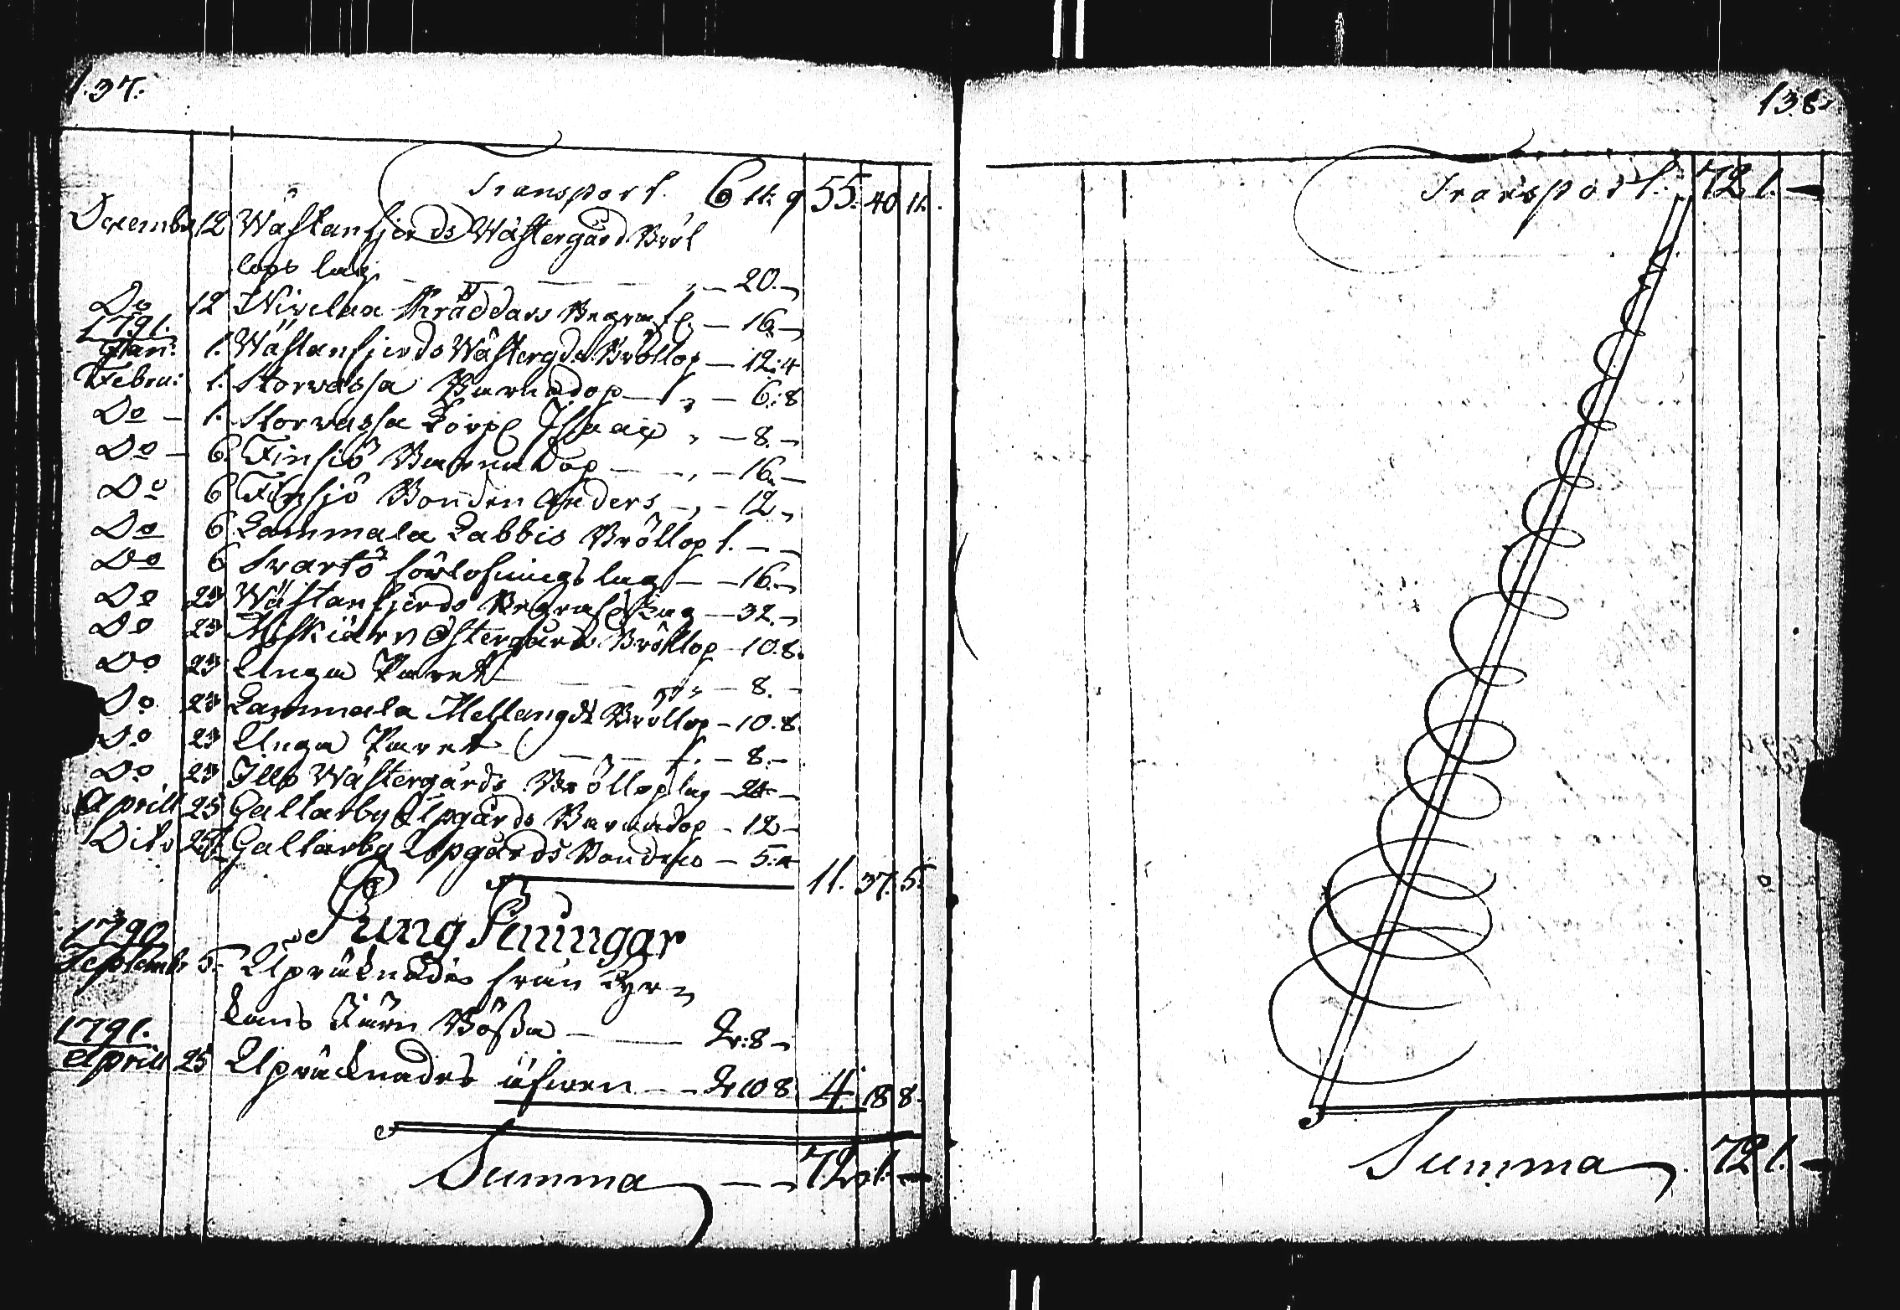 137.
Transport 6 11. 9 55. 40 11.
Decembr 12 Wästanfjerds Wästergård Bröl
lops lag — 20.—
Do 12 Nivelax Skräddars Begrafn — 16.—
1791.
Janr: 1. Wästanfjerds Wästergds Bröllop — 12:4
Februr: 1. Storvassa Barnadop — 6:8
Do — 1. Storvassa Isaac — 8.—
Do — 6. Finsjö Barnadop — 16.—
Do 6 Finsjö Bonden Anders — 12.—
Do 6 Lammala Labbis Bröllop 1. — —
Do 6 Svartö förlofnings lag — 16.—
Do 23 Wästanfjerds Begrafn Lag — 32.—
Do 23 Östergårds Bröllop — 10.8.
Do 23 Unga Paret — 8.—
Do 23 Lammala Mellangds Bröllop — 10.8.
Do 23 Unga Paret — 8.—
Do 23 Illo Wästergårds Bröllops lag — 24 —
Aprill 25 Galtarby Upgårds Barnadop — 12 —
Dito 25 Galtarby Upgårds Bonden — 5:4
11. 37. 5.
Pung Peningar
1790
Septembr 5. Upräknades från Kyr=
kans Järn Bössa — 2r:8 —
1791.
Aprill 25 Upräcknades äfwen — 2r 10 8. 4. 18 8.
Summa — 72. 1. —
138.
Transport. 72 1. —
Summa 72 1. —